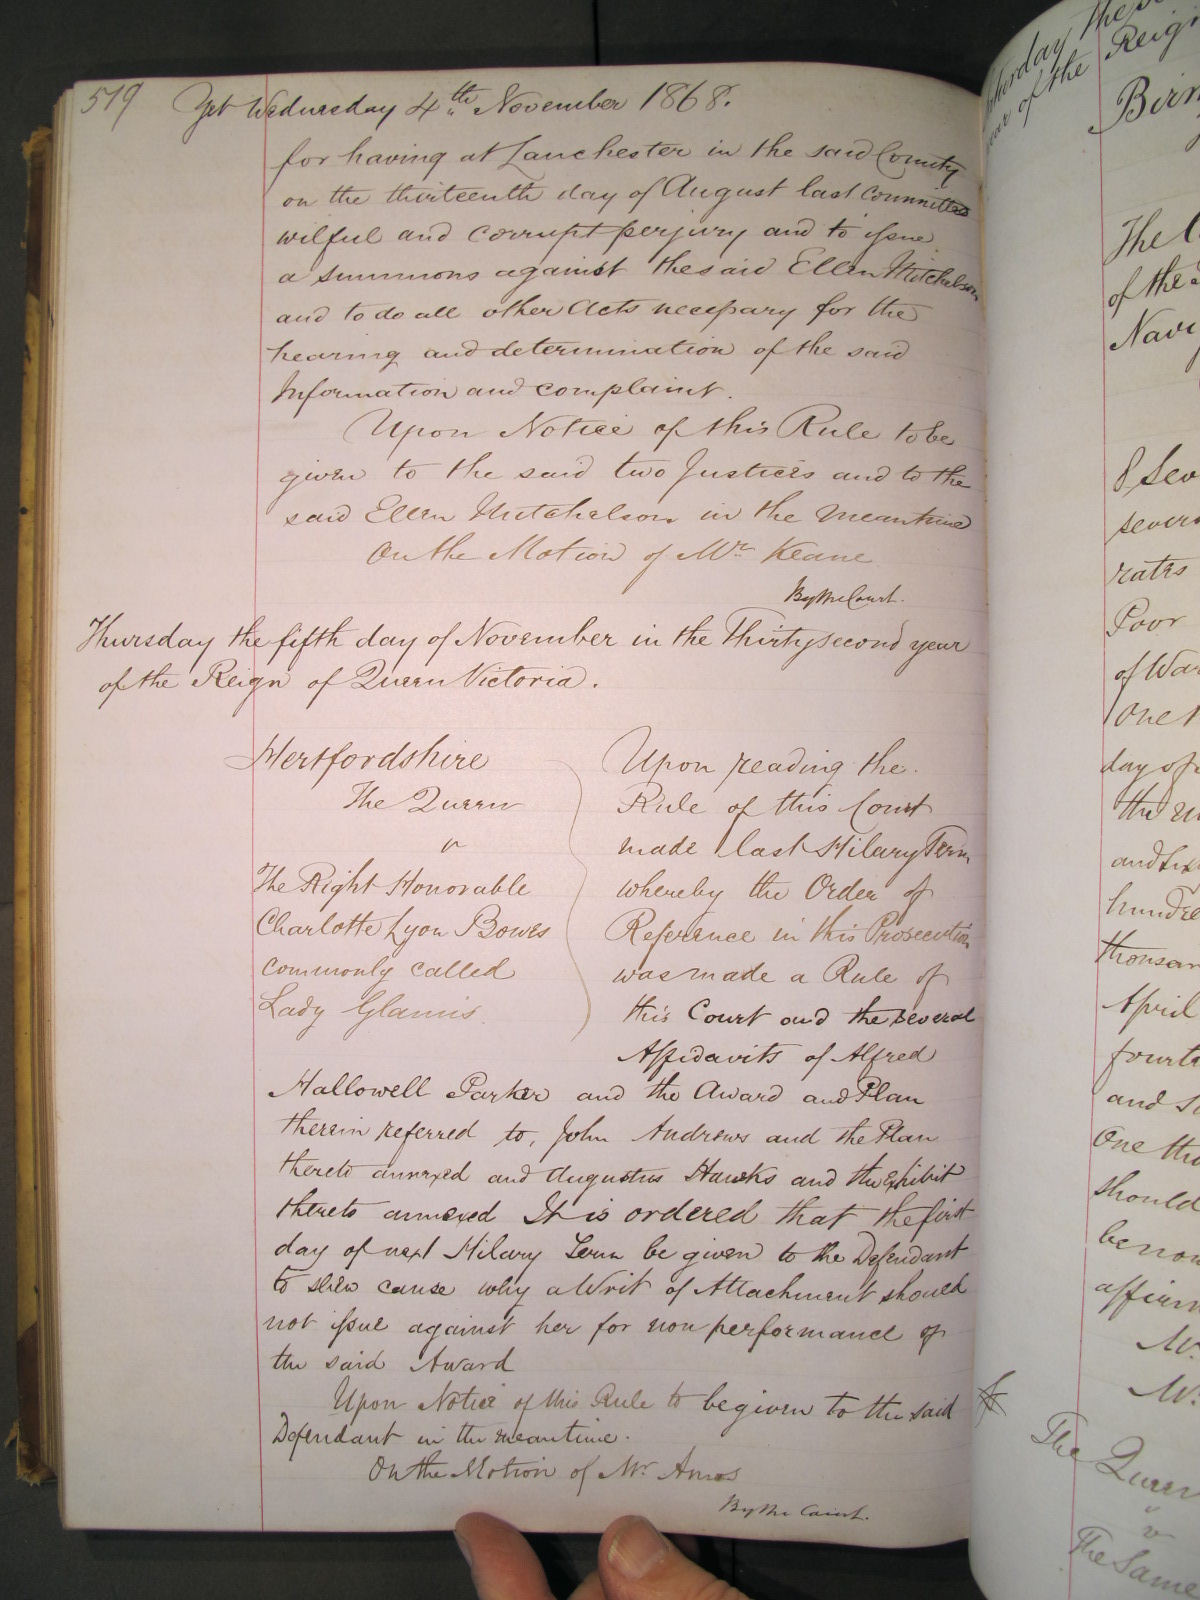 519 Yet Wednesday 4th November 1868.
for having at Lanchester in the said County
on the thirteenth day of August last committed
wilful and corrupt perjury and to issue
a summons against the said Ellen Mitchelson
and to do all other Acts necessary for the
hearing and determination of the said
Information and complaint.
Upon Notice of this Rule to be
given to the said two Justices and to the
said Ellen Mitchelson in the meantime
On the Motion of Mr Keane
By the Court.
Thursday the fifth day of November in the Thirty second year
of the Reign of Queen Victoria.
Hertfordshire
The Queen
v
The Right Honorable
Charlotte Lyon Bowes
commonly called
Lady Glamis.
Upon reading the
Rule of this Court
made last Hilary Term
whereby the Order of
Reference in this Prosecution
was made a Rule of
this Court and the several
Affidavits of Alfred
Hallowell Parker and the Award and Plan
therein referred to, John Andrews and the Plan
thereto annexed and Augustus Hawks and the Exhibit
thereto annexed It is ordered that the first
day of next Hilary Term be given to the Defendant
to shew cause why a Writ of Attachment should
not issue against her for non performance of
the said Award
Upon Notice of this Rule to be given to the said
Defendant in the meantime.
On the Motion of Mr Amos
By the Court.
of the Reign
The
of the
Navi
8 Sev
several
rates
Poor
of War
One
day of
the
hundred
thousan
April
fourte
and
One tho
should
be now
affirm
Mr.
Mr.
The Queen
v
The Same